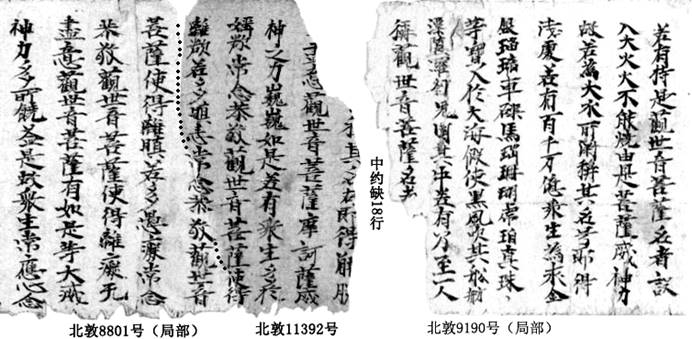 若有持是觀世音菩薩名者設
入大火火不能燒由是菩薩威神力
故若為大水所漂稱其名号即得
淺處若有百千万億衆生為求金
銀琉璃車磲馬瑙珊瑚虎珀真珠
等寶入於大海假使黑風吹其船舫
漂墮羅刹鬼國其中若有乃至一人
稱觀世音菩薩名者
中约缺18行
其名即得解脱
盡意觀世音菩薩摩訶薩威
神之力巍巍如是若有衆生多於
婬欲常念恭敬觀世音菩薩便得
離欲若多瞋恚常念恭敬觀世音
菩薩便得離瞋若多愚癡常念
恭敬觀世音菩薩便得離癡无
盡意觀世音菩薩有如是等大威
神力多所饒益是故衆生常應心念
北敦8801号（局部）
北敦11392号
北敦9190号（局部）